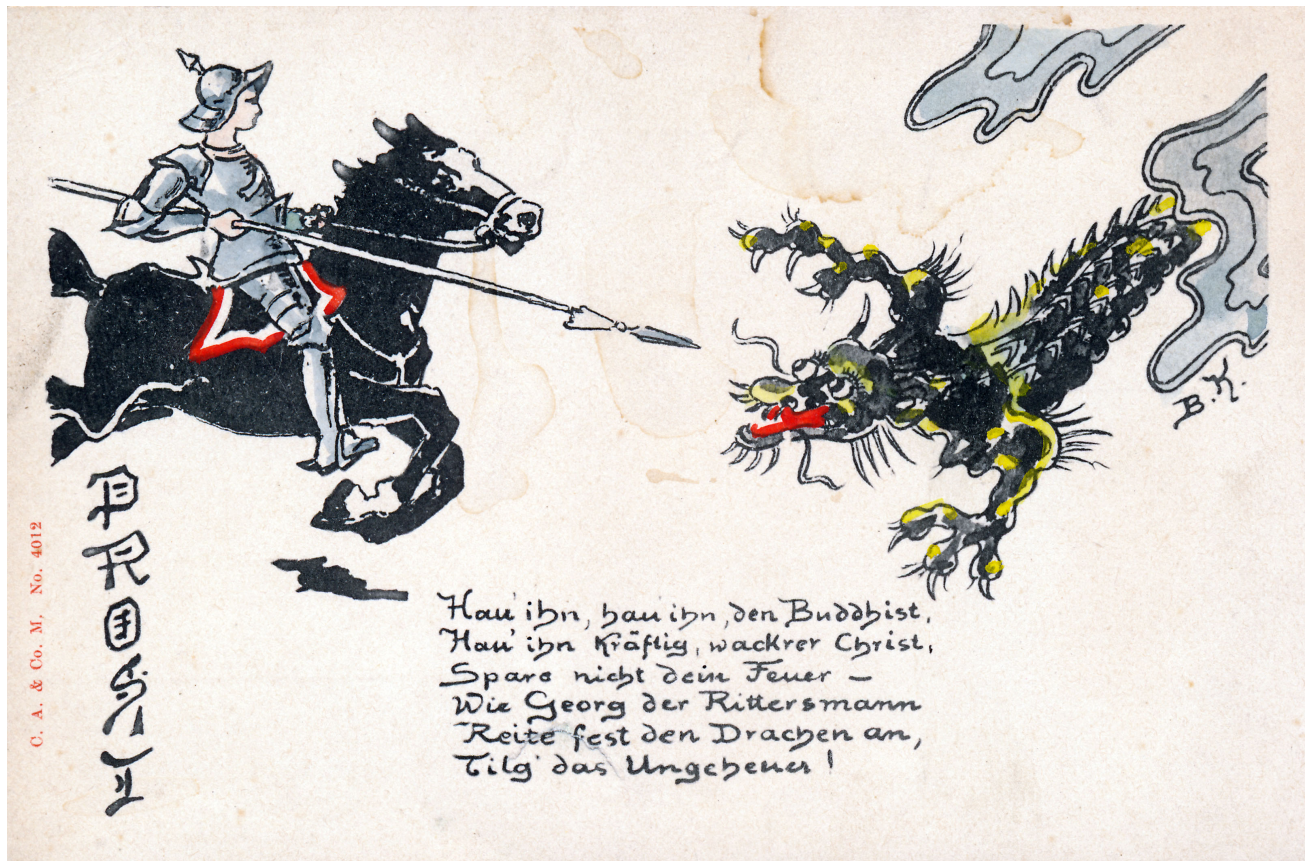 PROSIT
C. A. & Co. M, No. 4012
B. K.
Hau' ihn, hau' ihn, den Buddhist,
Hau' ihn kräftig, wackrer Christ,
Spare nicht dein Feuer –
Wie Georg der Rittersmann
Reite fest den Drachen an,
Tilg' das Ungeheuer!